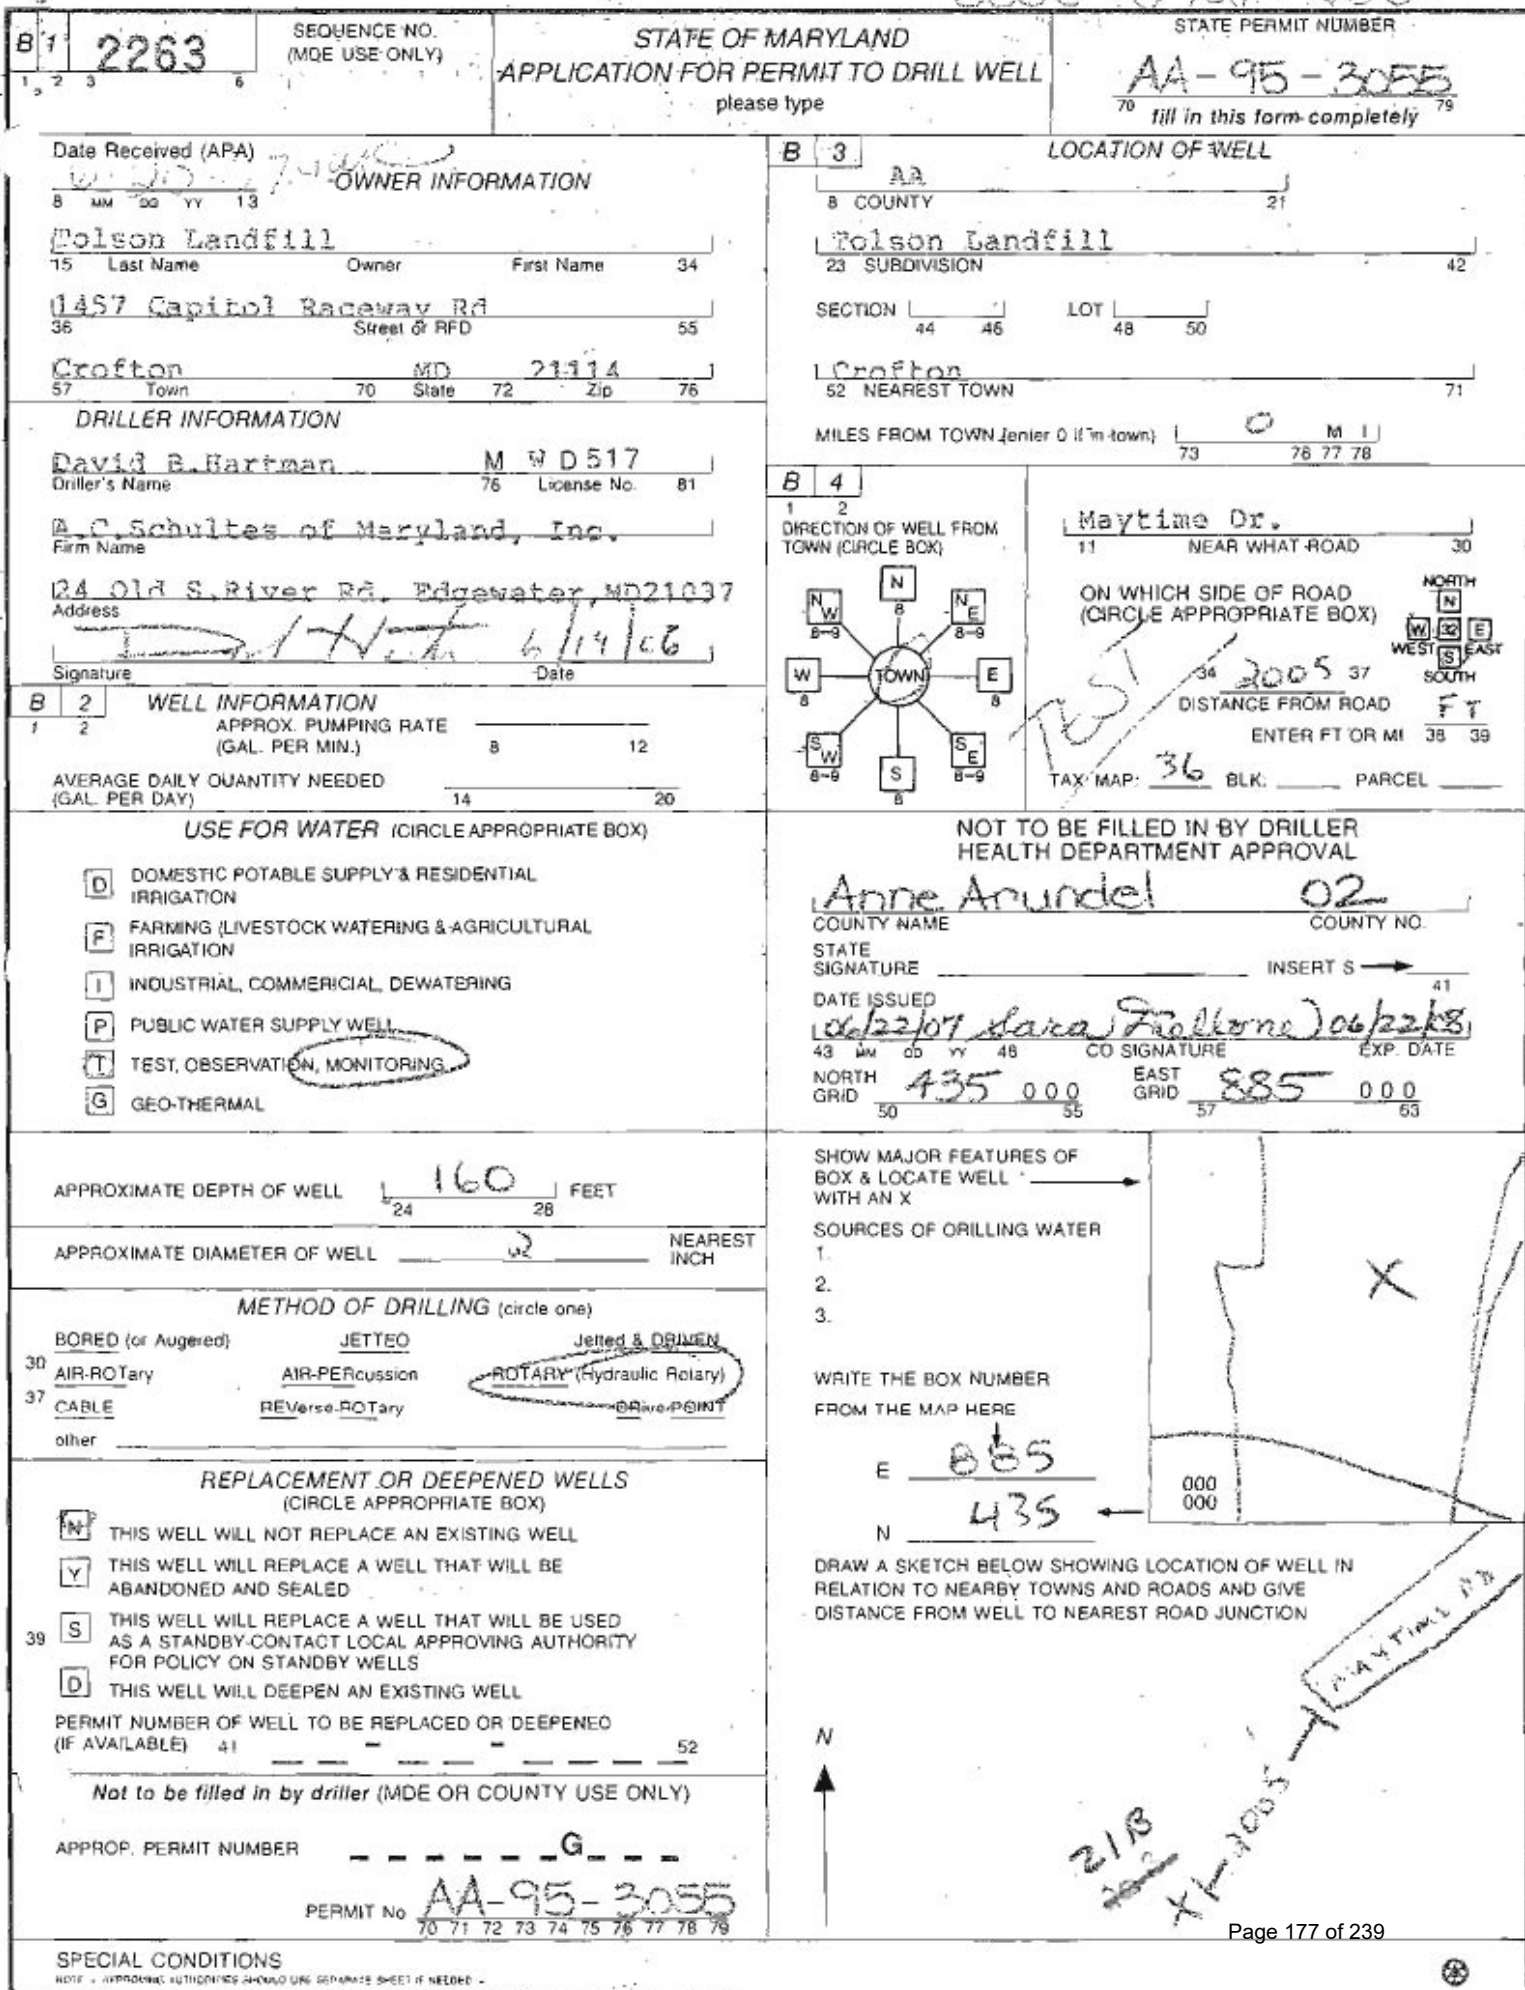 B 1 2263
1 2 3 6
SEQUENCE NO.
(MDE USE ONLY)
STATE OF MARYLAND
APPLICATION FOR PERMIT TO DRILL WELL
please type
STATE PERMIT NUMBER
AA-95-3055
70 79
fill in this form completely
Date Received (APA)
8 MM DD YY 13
OWNER INFORMATION
Tolson Landfill
15 Last Name Owner First Name 34
1457 Capitol Raceway Rd
36 Street or RFD 55
Crofton MD 21114
57 Town 70 State 72 Zip 76
DRILLER INFORMATION
David B. Hartman M W D 517
Driller's Name 76 License No. 81
A.C.Schultes of Maryland, Inc.
Firm Name
24 Old S.River Rd. Edgewater,MD21037
Address
6/19/06
Signature Date
B 2 WELL INFORMATION
1 2
APPROX. PUMPING RATE
(GAL. PER MIN.) 8 12
AVERAGE DAILY QUANTITY NEEDED
(GAL. PER DAY) 14 20
USE FOR WATER (CIRCLE APPROPRIATE BOX)
D DOMESTIC POTABLE SUPPLY & RESIDENTIAL
IRRIGATION
F FARMING (LIVESTOCK WATERING & AGRICULTURAL
IRRIGATION
I INDUSTRIAL, COMMERICIAL, DEWATERING
P PUBLIC WATER SUPPLY WELL
T TEST, OBSERVATION, MONITORING
G GEO-THERMAL
APPROXIMATE DEPTH OF WELL 160 FEET
24 28
APPROXIMATE DIAMETER OF WELL 2 NEAREST
INCH
METHOD OF DRILLING (circle one)
BORED (or Augered) JETTED Jetted & DRIVEN
30 AIR-ROTary AIR-PERcussion ROTARY (Hydraulic Rotary)
37 CABLE REVerse-ROTary DRive-POINT
other
REPLACEMENT OR DEEPENED WELLS
(CIRCLE APPROPRIATE BOX)
N THIS WELL WILL NOT REPLACE AN EXISTING WELL
Y THIS WELL WILL REPLACE A WELL THAT WILL BE
ABANDONED AND SEALED
39 S THIS WELL WILL REPLACE A WELL THAT WILL BE USED
AS A STANDBY-CONTACT LOCAL APPROVING AUTHORITY
FOR POLICY ON STANDBY WELLS
D THIS WELL WILL DEEPEN AN EXISTING WELL
PERMIT NUMBER OF WELL TO BE REPLACED OR DEEPENED
(IF AVAILABLE) 41 - - 52
Not to be filled in by driller (MDE OR COUNTY USE ONLY)
APPROP. PERMIT NUMBER G
PERMIT No AA-95-3055
70 71 72 73 74 75 76 77 78 79
SPECIAL CONDITIONS
NOTE - APPROVING AUTHORITIES SHOULD USE SEPARATE SHEET IF NEEDED -
B 3 LOCATION OF WELL
AA
8 COUNTY 21
Tolson Landfill
23 SUBDIVISION 42
SECTION LOT
44 46 48 50
Crofton
52 NEAREST TOWN 71
MILES FROM TOWN (enter 0 if in town) 0 M I
73 76 77 78
B 4
1 2
DIRECTION OF WELL FROM
TOWN (CIRCLE BOX)
N
8
NW NE
8-9 8-9
W TOWN E
8 8
SW SE
8-9 8-9
S
8
Maytime Dr.
11 NEAR WHAT ROAD 30
ON WHICH SIDE OF ROAD
(CIRCLE APPROPRIATE BOX)
NORTH
N
W 32 E
WEST S EAST
SOUTH
TEST
34 2005 37
DISTANCE FROM ROAD
ENTER FT OR MI FT
38 39
TAX MAP: 36 BLK: PARCEL
NOT TO BE FILLED IN BY DRILLER
HEALTH DEPARTMENT APPROVAL
Anne Arundel 02
COUNTY NAME COUNTY NO.
STATE
SIGNATURE INSERT S
41
DATE ISSUED
06/22/07 Sara 06/22/08
43 MM DD YY 48 CO SIGNATURE EXP. DATE
NORTH
GRID 435 000
50 55
EAST
GRID 885 000
57 63
SHOW MAJOR FEATURES OF
BOX & LOCATE WELL
WITH AN X
SOURCES OF DRILLING WATER
1.
2.
3.
X
WRITE THE BOX NUMBER
FROM THE MAP HERE
E 885
N 435
000
000
DRAW A SKETCH BELOW SHOWING LOCATION OF WELL IN
RELATION TO NEARBY TOWNS AND ROADS AND GIVE
DISTANCE FROM WELL TO NEAREST ROAD JUNCTION
MAYTIME DR
N
2005
X
21B
Page 177 of 239